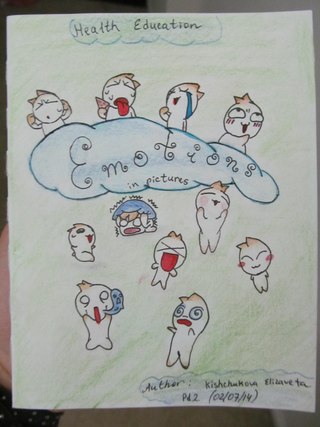 Health Education
Emotions
in pictures
Author: Kishchukova Elizaveta
Pd.2 (02/07/14)